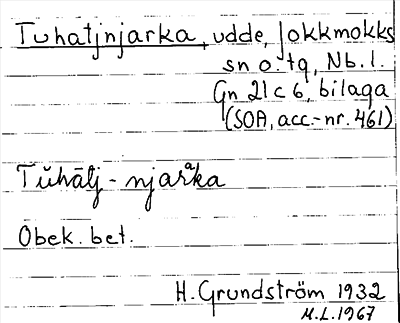 Tuhatjnjarka, udde, Jokkmokks
sn o. tq, Nb. l.
Gn 21 c 6, bilaga
(SOA, acc.-nr. 461)
Tŭhāt́j - njarᵃka
Obek. bet.
H. Grundström 1932
M.L. 1967